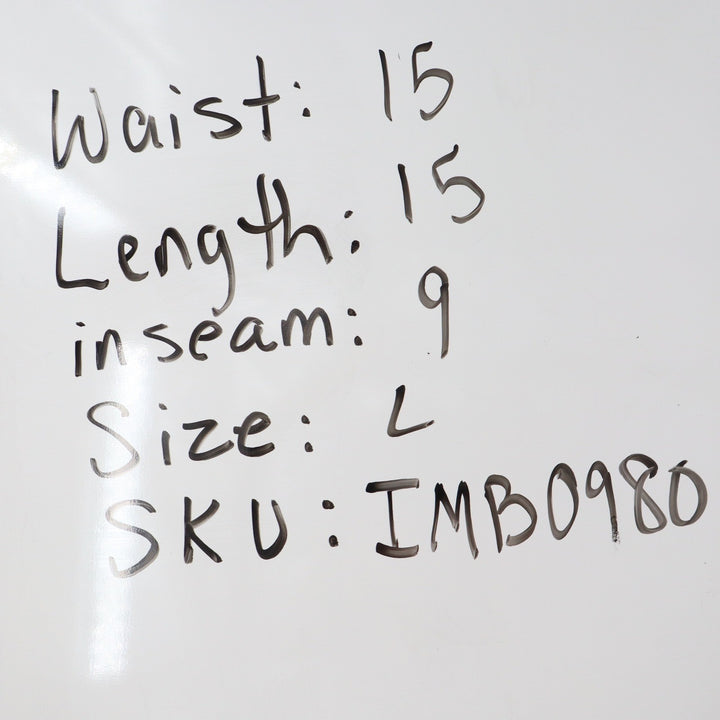 Waist: 15
Length: 15
inseam: 9
Size: L
SKU: IMB0980